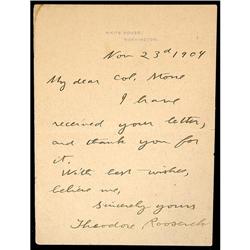 WHITE HOUSE,
WASHINGTON.
Nov 23d 1904
My dear Col. Stone
I have
received your letter,
and thank you for
it.
With best wishes,
believe me,
Sincerely yours
Theodore Roosevelt